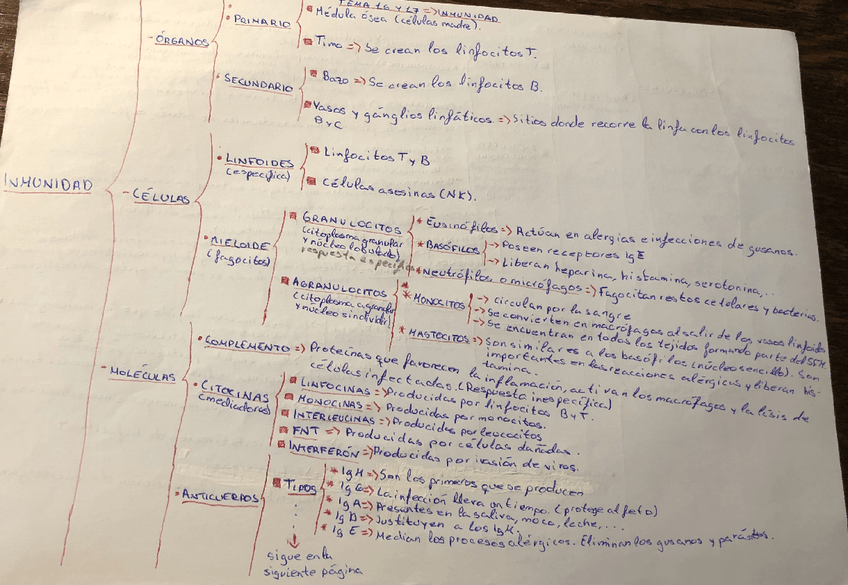 TEMA 16 Y 17 => INMUNIDAD
INMUNIDAD
- ÓRGANOS
• PRIMARIO
Médula ósea (células madre).
Timo => Se crean los linfocitos T.
• SECUNDARIO
Bazo => Se crean los linfocitos B.
Vasos y gánglios linfáticos => Sitios donde recorre la linfa con los linfocitos
B y C
- CÉLULAS
• LINFOIDES
(específica)
Linfocitos T y B
Células asesinas (NK).
• MIELOIDE
(fagocitos)
GRANULOCITOS
(citoplasma granular
y núcleo lobulado)
respuesta específica
* Eusinófilos => Actúan en alergias e infecciones de gusanos.
* BASÓFILOS
-> Poseen receptores IgE
-> Liberan heparina, histamina, serotonina,...
* Neutrófilos o micrófagos => Fagocitan restos celelares y bacterias.
AGRANULOCITOS
(citoplasma agranular
y núcleo sin dividir)
* MONOCITOS
-> circulan por la sangre
-> Se convierten en macrófagos al salir de los vasos linfoides
-> Se encuentran en todos los tejidos formando parte del SFM
* MASTOCITOS => Son similares a los basófilos (núcleo sencillo). Son
importantes en las reacciones alérgicas y liberan his-
tamina.
- MOLÉCULAS
• COMPLEMENTO => Proteínas que favorecen la inflamación, activan los macrófagos y la lisis de
células infectadas. (Respuesta inespecífica)
• CITOCINAS
(mediadoras)
LINFOCINAS => Producidas por linfocitos B y T.
MONOCINAS => Producidas por monocitos.
INTERLEUCINAS => Producidas por leococitos
FNT => Producidas por células dañadas.
INTERFERÓN => Producidas por invasión de virus.
• ANTICUERPOS
TIPOS
* IgM => Son los primeros que se producen
* IgG => La infección lleva un tiempo. (protege al feto)
* IgA => Presentes en la saliva, moco, leche,...
* IgD => Sustituyen a los IgM.
* IgE => Median los procesos alérgicos. Eliminan los gusanos y parásitos.
sigue en la
siguiente página